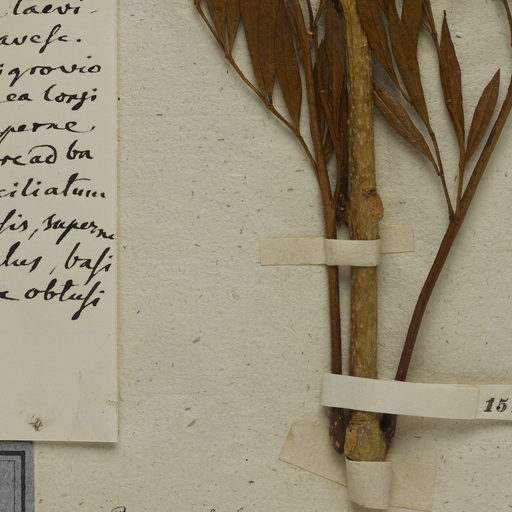 laevi-
avesc.
igrovio
ea longi
perne,
re ad ba
ciliatum
sis, superne
lus, basi
e obtusi
15